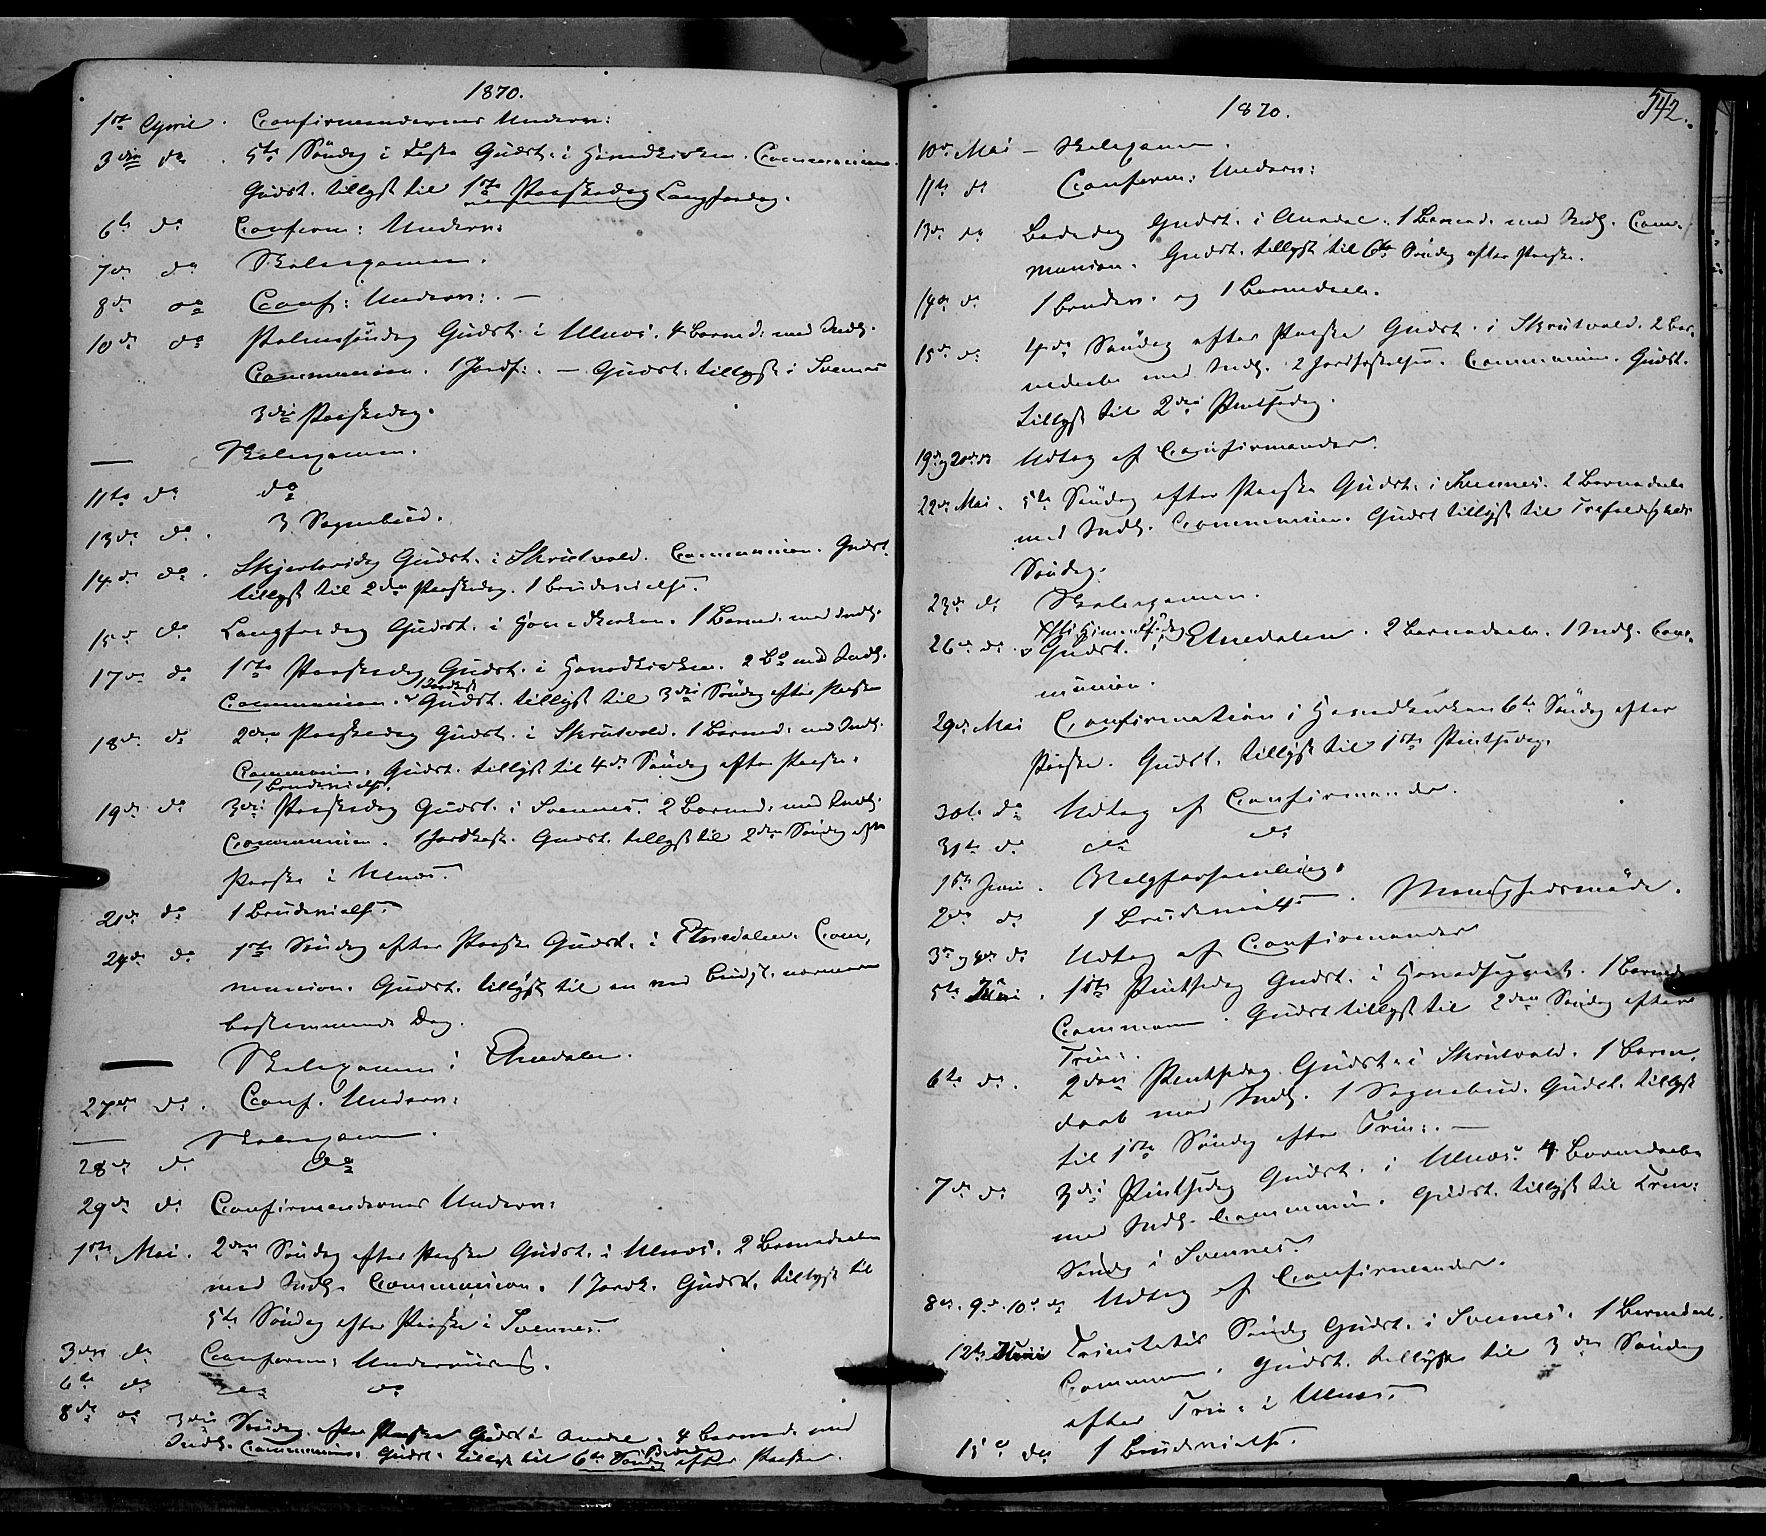 1870.
1ste April. Confirmandernes Underv:
3die do. 5te Søndag i Faste Gudst. i Hovedkirken. Communion.
Gudst. tillyst til 1ste Paaskedag Langfredag.
6te do Confirm: Underv:
7de do Skoleexamen.
8de do Conf: Underv: —
10de do Palmesøndag Gudst. i Ulnæs. 4 Barned. med Indl.
Communion. 1 Jordf: — Gudst. tillyst i Svennes
3die Paaskedag.
— Skoleexamen.
11te do do
13de do. 3 Sognebud.
14de do. Skjertorsdag Gudst. i Skrutvold. Communion. Gudst.
tillyst til 2den Paaskedag. 1 Brudevielse.
15de do Langfredag Gudst. i Hovedkirken. 1 Barned. med Indl.
17de do 1ste Paaskedag Gudst. i Hovedkirken. 2 Bd med Indl.
Communion. 1 Jordf. Gudst. tillyst til 3die Søndag efter Paaske
18de do 2den Paaskedag Gudst. i Skrutvold. 1 Barned. med Indl.
Communion. Gudst. tillyst til 4de Søndag efter Paaske.
1 Brudevielse.
19de do 3die Paaskedag Gudst. i Svennes. 2 Barned. med Indl.
Communion. 1 Jordkast. Gudst. tillyst til 2den Søndag efter
Paaske i Ulnæs.
21de do 1 Brudevielse.
24de do 1ste Søndag efter Paaske Gudst. i Etnedalen. Com-
munion. Gudst. tillyst til en ved Budst. nærmere
bestemmende Dag.
— Skoleexamen i Etnedalen.
27de do. Conf. Underv:
— Skoleexamen.
28de do do
29de do Confirmandernes Underv:
1ste Mai. 2den Søndag efter Paaske Gudst. i Ulnæs. 2 Barnedaab
med Indl. Communion. 1 Jordk. Gudst. tillyst til
5te Søndag efter Paaske i Svennes.
3die do Confirm: Underviisng.
6te do do do
8de do 3die Søndag efter Paaske Gudst i 4 Barned. med
Indl. Communion. Gudst. tillyst til 6te Søndag Bededag efter Paaske.
1870.
542.
10de Mai — Skoleexamen.
11te do Confirm: Underv:
13de do Bededag Gudst. i. 1 Barned. med Indl. Com-
munion. Gudst. tillyst til 6te Søndag efter Paaske.
14de do 1 Brudev. og 1 Barnedaab.
15de do 4de Søndag efter Paaske Gudst. i Skrutvold. 2 Bar-
nedaab med Indl. 2 Jordfæstelser. Communion. Gudst.
tillyst til 2den Pintsedag.
19de og 20de do Udtag af Confirmander.
22de Mai. 5te Søndag efter Paaske Gudst. i Svennes. 2 Barnedaab
med Indl. Communion. Gudst tillyst til Trefoldigheds
Søndag.
23de do Skoleexamen.
26de do. Chr: Himmelf: dag
Gudst. i Etnedalen. 2 Barnedaab. 1 Indl. Com-
munion.
29de Mai Confirmation i Hovedkirken 6te Søndag efter
Paaske. Gudst. tillyst til 1ste Pintsedag.
30te do Udtag af Confirmander.
31te do do do
1ste Juni. Valgforsamling.
2de do 1 Brudevielse. Menighedsmøde.
3de og 4de do Udtag af Confirmander
5te Juni. 1ste Pintsedag Gudst. i Hovedsognet. 1 Barned.
Commun. Gudst tillyst til 2den Søndag efter
Trin:.
6te do. 2den Pintsedag Gudst. i Skrutvold. 1 Barne-
daab med Indl. 1 Sognebud. Gudst. tillyst
til 1ste Søndag efter Trin:. —
7de do 3die Pintsedag Gudst. i Ulnæs. 4 Barnedaab
med Indl. Communion. Gudst. tillyst til Trin:
Søndag i Svennes.
8de, 9de, 10de do Udtag af Confirmander.
12te Juni Trinitatis Søndag Gudst. i Svennes. 1 Barnedaab.
Commun. Gudst. tillyst til 3die Søndag
efter Trin: i Ulnæs.
15de do 1 Brudevielse.